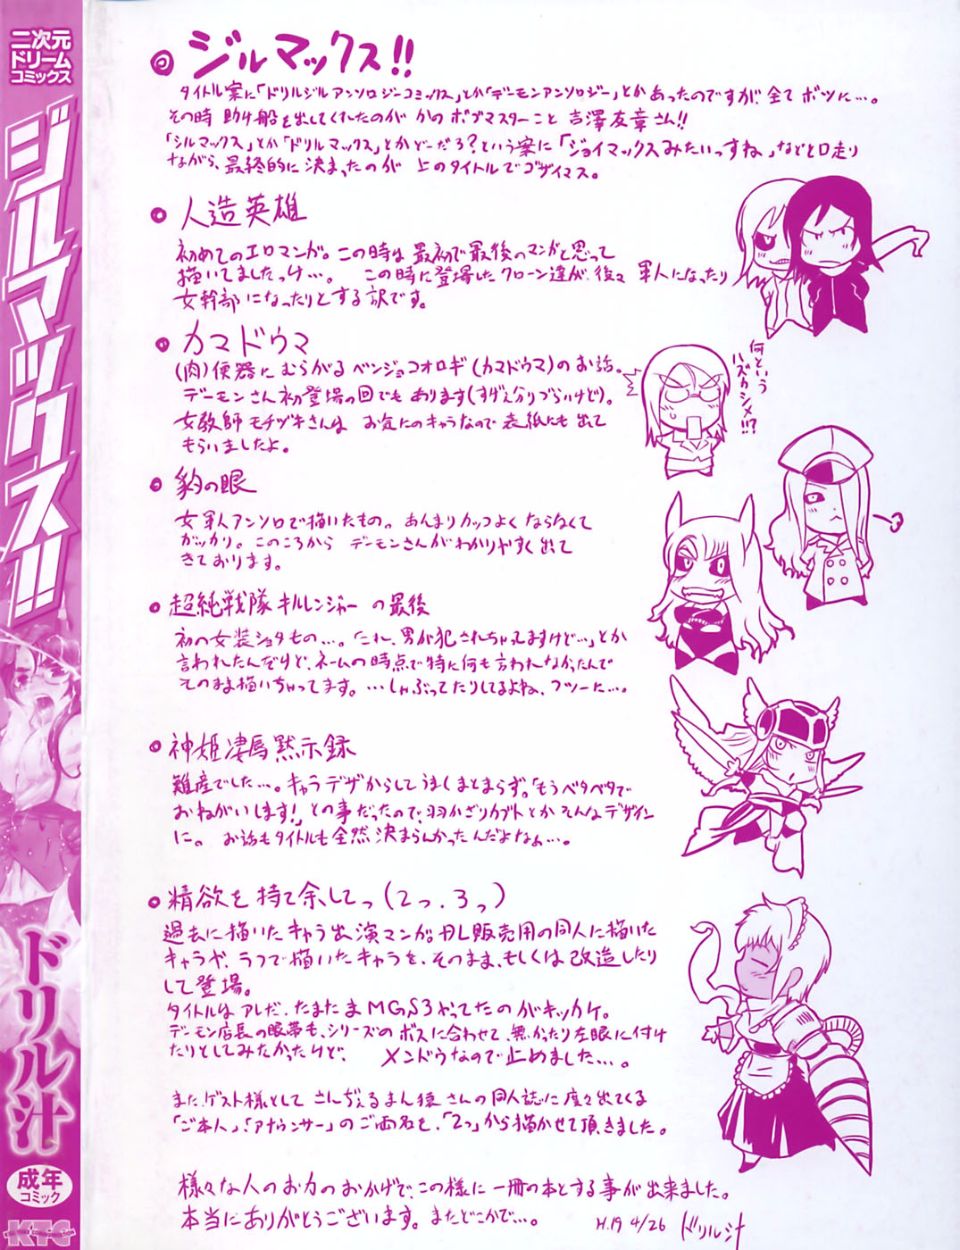 二次元
ドリーム
コミックス
ジルマックス!!
ドリル汁
成年
コミック
KTC
ジルマックス!!
タイトル案に「ドリルジルアンソロジーコミックス」とか「デーモンアンソロジー」とかあったのですが、全てボツに…。
その時 助け船を出してくれたのが かのボブマスターこと 吉澤友章さん!!
「シルマックス」とか「ドリルマックス」とかどーだろ?という案に「ジョイマックスみたいっすね」などと口走り
ながら、最終的に決まったのが 上のタイトルでゴザイマス。
人造英雄
初めてのエロマンガ。この時は最初で最後のマンガと思って
描いてましたっけ…。 この時に登場したクローン達が、後々 軍人になったり
女幹部になったりとする訳です。
カマドウマ
(肉)便器にむらがるベンジョコオロギ(カマドウマ)のお話。
デーモンさん初登場の回でもあります(すげえ分りづらいけど)。
女教師モチヅキさんは お気にのキャラなので表紙にも出て
もらいましたよ。
何という
ハズカシメ!!?
豹の眼
女軍人アンソロで描いたもの。あんまりカッコよくならなくて
ガッカリ。このころから デーモンさんがわかりやすく出て
きております。
超純戦隊キルレンジャーの最後
初の女装ショタもの…。「これ、男が犯されちゃってますけど…」とか
言われたんだけど、ネームの時点で特に何も言われなかったんで
そのまま描いちゃってます。…しゃぶってたりしてるよね、フツーに…。
神姫凄辱黙示録
難産でした…。キャラデザからしてうまくまとまらず、「もうベタベタで
おねがいします!」との事だったので、羽かざりカブトとかそんなデザイン
に。 お話もタイトルも全然決まらんかったんだよなぁ…。
精欲を持て余してっ(2っ.3っ)
過去に描いたキャラ出演マンガ。DL販売用の同人に描いた
キャラや、ラフで描いたキャラを、そのまま、もしくは改造したり
して登場。
タイトルはアレだ、たまたまMGS3やってたのがキッカケ。
デーモン店長の眼帯も、シリーズのボスに合わせて、無かったり左眼に付け
たりとしてみたかったけど、 メンドウなので止めました…。
また、ゲスト様として さんぢぇるまん猿さんの同人誌に度々出てくる
「ご本人」、「アナウンサー」のご両名を、「2っ」から描かせて頂きました。
様々な人のお力のおかげで、この様に一冊の本とする事が出来ました。
本当にありがとうございます。またどこかで…。 H.19 4/26 ドリル汁